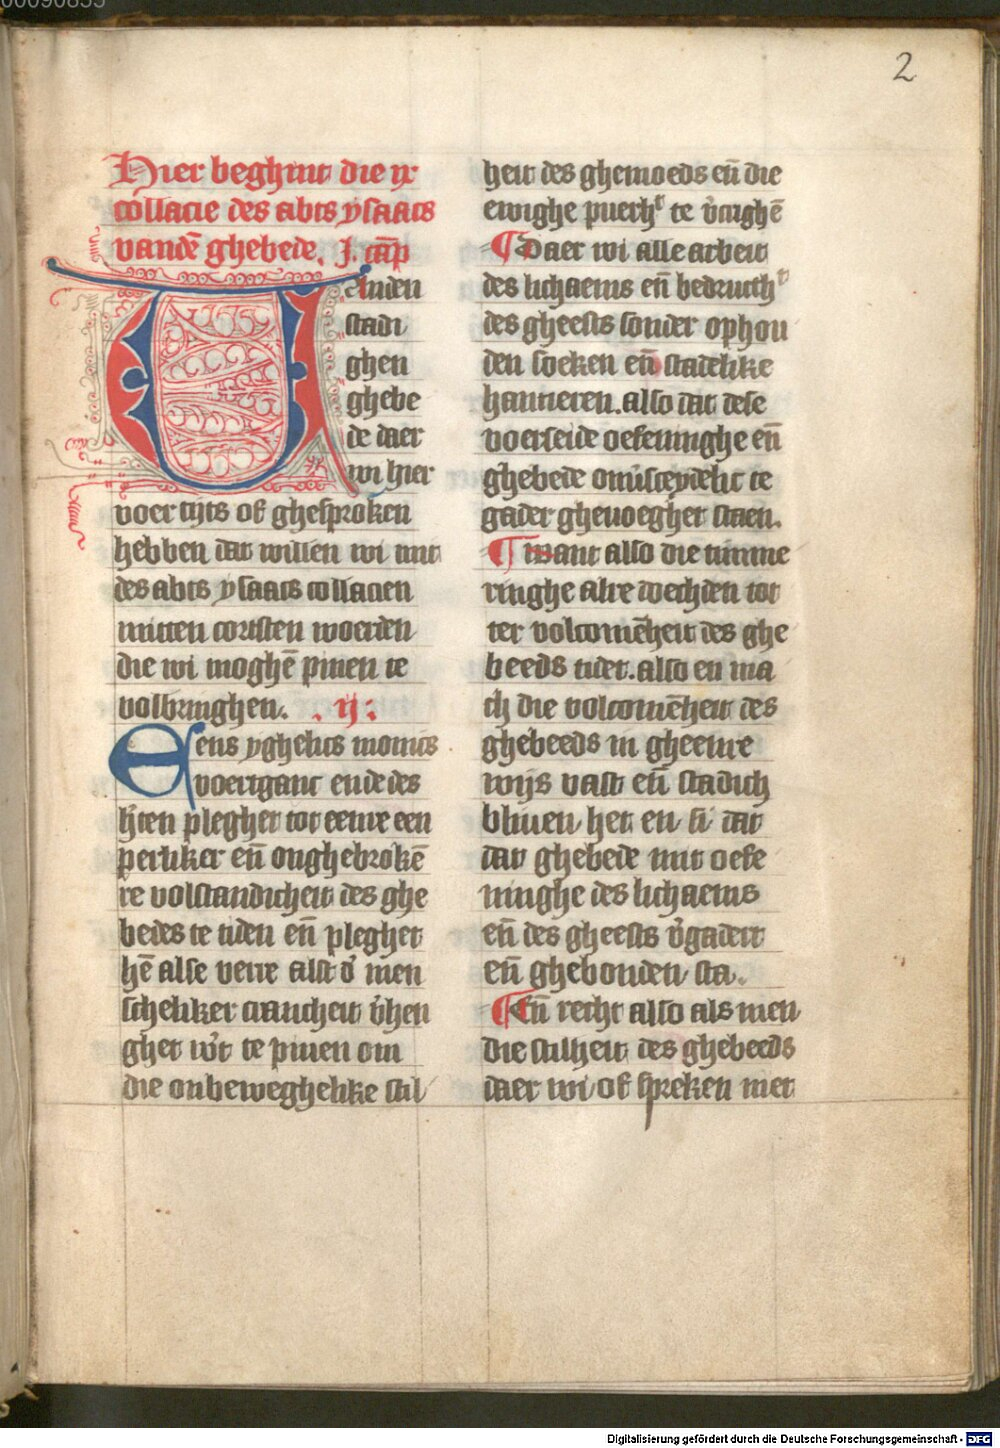 2
Hier beghint die ix
collacie des abts ysaacs
vandē ghebede. J. cāp
Vanden
stadi
ghen
ghebe
de daer
wi hier
voertijts of ghesproken
hebben dat willen wi mit
des abts ysaacs collacien
mitten cortsten woerden
die wi moghē pinen te
volbringhen. . ij :
Eens yghelics monics
voertganc ende des
hʼten pleghet tot eenre een
perliker en̄ onghebrokē
re volstandicheit des ghe
bedes te tiden en̄ pleghet
hē alse verre alst dʼ men
scheliker crancheit vʼhen
ghet wʼt te pinen om
die onbeweghelike stil
heit des ghemoeds en̄ die
ewighe puerhʼt te vʼcrighē
¶ Daer wi alle arbeit
des lichaems en̄ bedructhʼt
des gheests sonder ophou
den soeken en̄ stadelike
hantieren. also dat dese
voerseide oefeninghe en̄
ghebede te
gader ghevoeghet staen.
¶ want also die timme
ringhe alre doechden tot
ter volcomēheit des ghe
beeds tidet. also en ma
ch die volcomēheit des
ghebeeds in gheenre
wijs vast en̄ stadich
bliuen het en si dat
dat ghebede mit oefe
ninghe des lichaems
en̄ des gheests vʼgadert
en̄ ghebonden sta.
¶ En̄ recht also als men
die stilheit des ghebeeds
daer wi of spreken niet
Digitalisierung gefördert durch die Deutsche Forschungsgemeinschaft - DFG